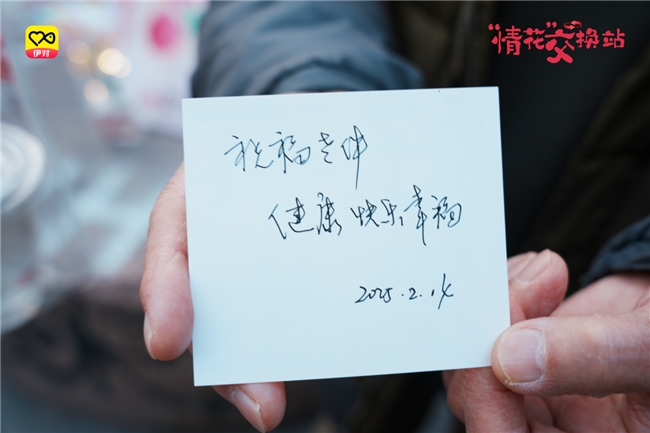 伊对
“情花”交换站
祝福老伴
健康快乐幸福
2025.2.14